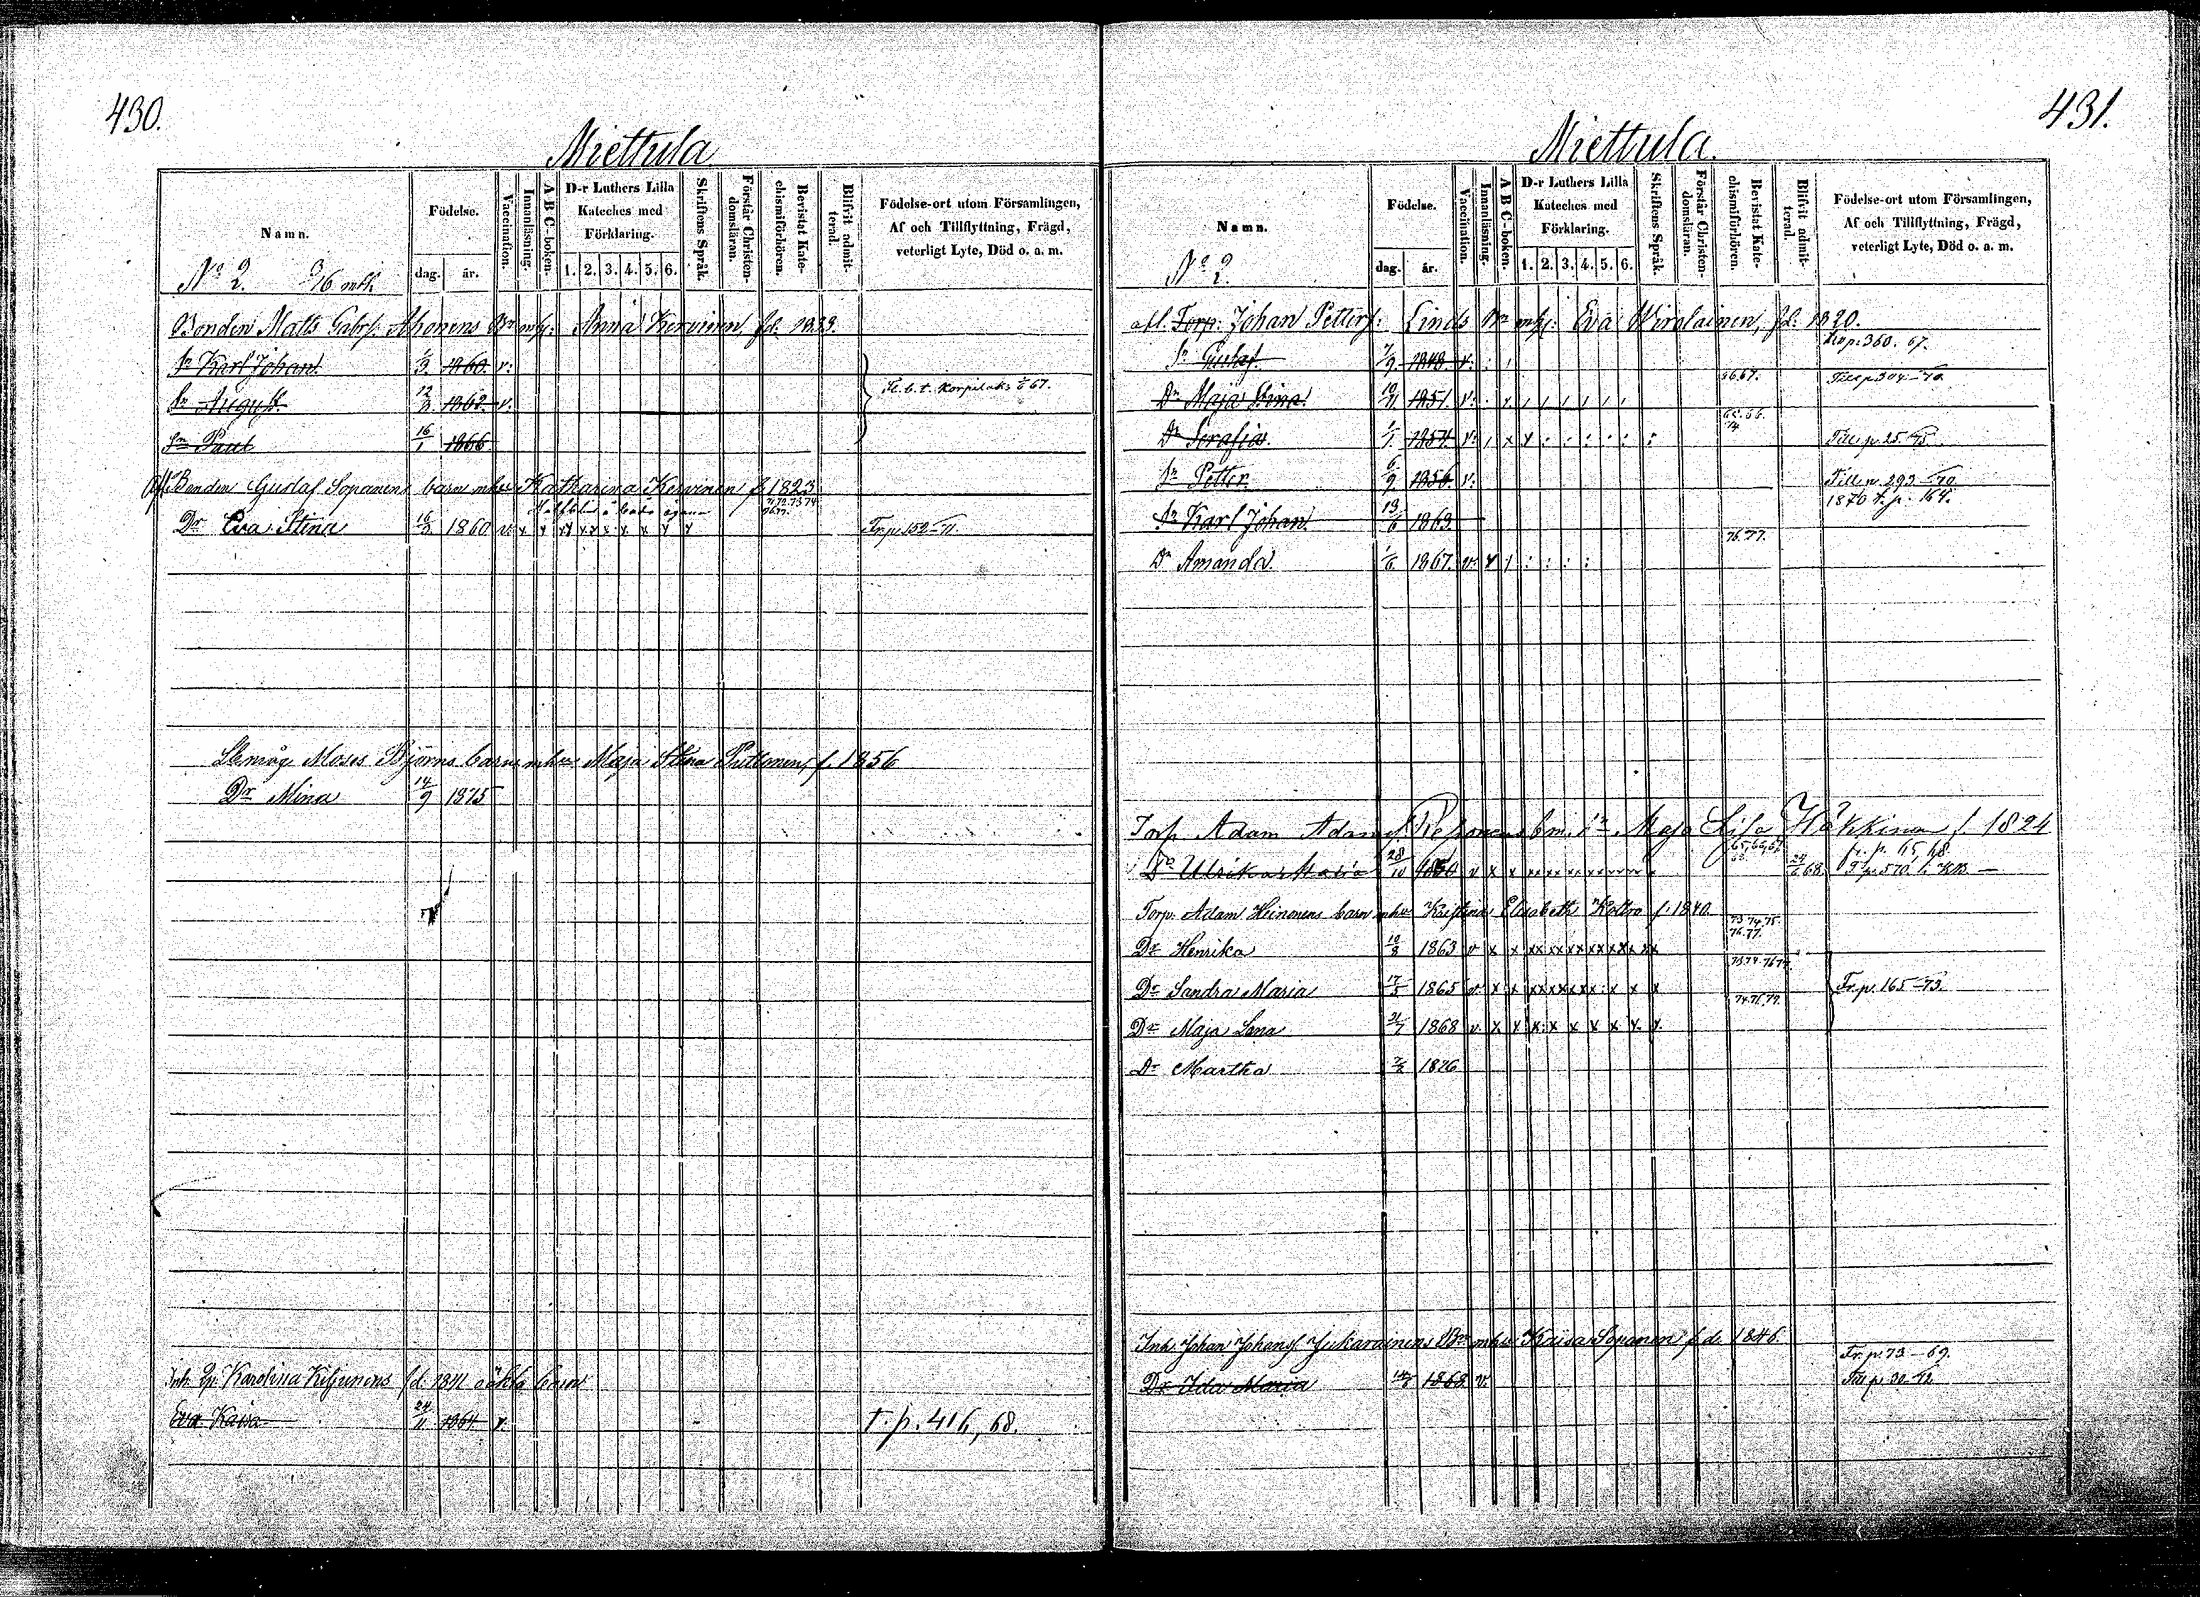 430.
Miettula
Namn.
Födelse.
dag. år.
Vaccination.
Innanläsning.
A B C-boken.
D-r Luthers Lilla
Kateches med
Förklaring.
1. 2. 3. 4. 5. 6.
Skriftens Språk.
Förstår Christen-
domsläran.
Bevistat Kate-
chismiförhören.
Blifvit admit-
terad.
Födelse-ort utom Församlingen,
Af och Tillflyttning, Frägd,
veterligt Lyte, Död o. a. m.
No 2. 3/6 mtl.
Bonden Matts Gabrs: Ahonens Bn mh: Anna Kervinen fd. 1833.
Sn Karl Johan 1/3. 1860. v:
Sn August. 12/3 1862. v:
Sn Paul 16/1 1866
Bonden Gustaf Sopanens barn mhu Katharina Kervinen f. 1823
71.72.73.74
76.77.
Dr Eva Stina 16/3 1860 v: x x x x x x x x x Fr.p. 152-71.
Moses Björns barn mhu Maja Stina f. 1856
Dr Mina 14/9 1875
Inh. Karolina Kiljunens fd. 1841 oäkta barn
Eva Kaisa 24/11 1864 v: t. p. 416, 68.
431.
Miettula.
Namn.
Födelse.
dag. år.
Vaccination.
Innanläsning.
A B C-boken.
D-r Luthers Lilla
Kateches med
Förklaring.
1. 2. 3. 4. 5. 6.
Skriftens Språk.
Förstår Christen-
domsläran.
Bevistat Kate-
chismiförhören.
Blifvit admit-
terad.
Födelse-ort utom Församlingen,
Af och Tillflyttning, Frägd,
veterligt Lyte, Död o. a. m.
No 2.
afl. Torp: Johan Petters: Linds Bn mh: Eva Wirolainen, fd: 1820.
Sn Gustaf 7/9 1848. v: 360. 67.
Dr Maja Stina 10/11 1851. v: 66.67. Till p 304-70.
Dr Serafia 1/1 1854. v: Till p. 25-75.
Sn Petter 6/9 1856. v: Till p. 293-70
Sn Karl Johan 13/6 1863 1870 t. p. 164.
Dr Amanda 1/6 1867. v: 76.77.
Torp Adam Adamss Reponens b m. Maja Lisa Häkkinen f. 1824
Dr Ulrika Maria 28/10 1850 v x x 65,66,67 68. 24/6 68. fr. p. 65, 68.
Torp: Adam Heinonens barn mhu Kristina Elisabeth f. 1840.
Dr Henrika 10/8 1863 v x x 73.74.75. 76.77.
Dr Sandra Maria 17/5 1865 v x x Fr.p. 165-73.
Dr Maja Lena 21/7 1868 v x x 74.76.77.
Dr Martha 1876
Inh. Johan Johans: Jukarainens Bn mhu Kaisa Sopanen fd. 1846.
Dr Ida Maria 1868 v. Fr. p. 73-69.
Till p 30-72